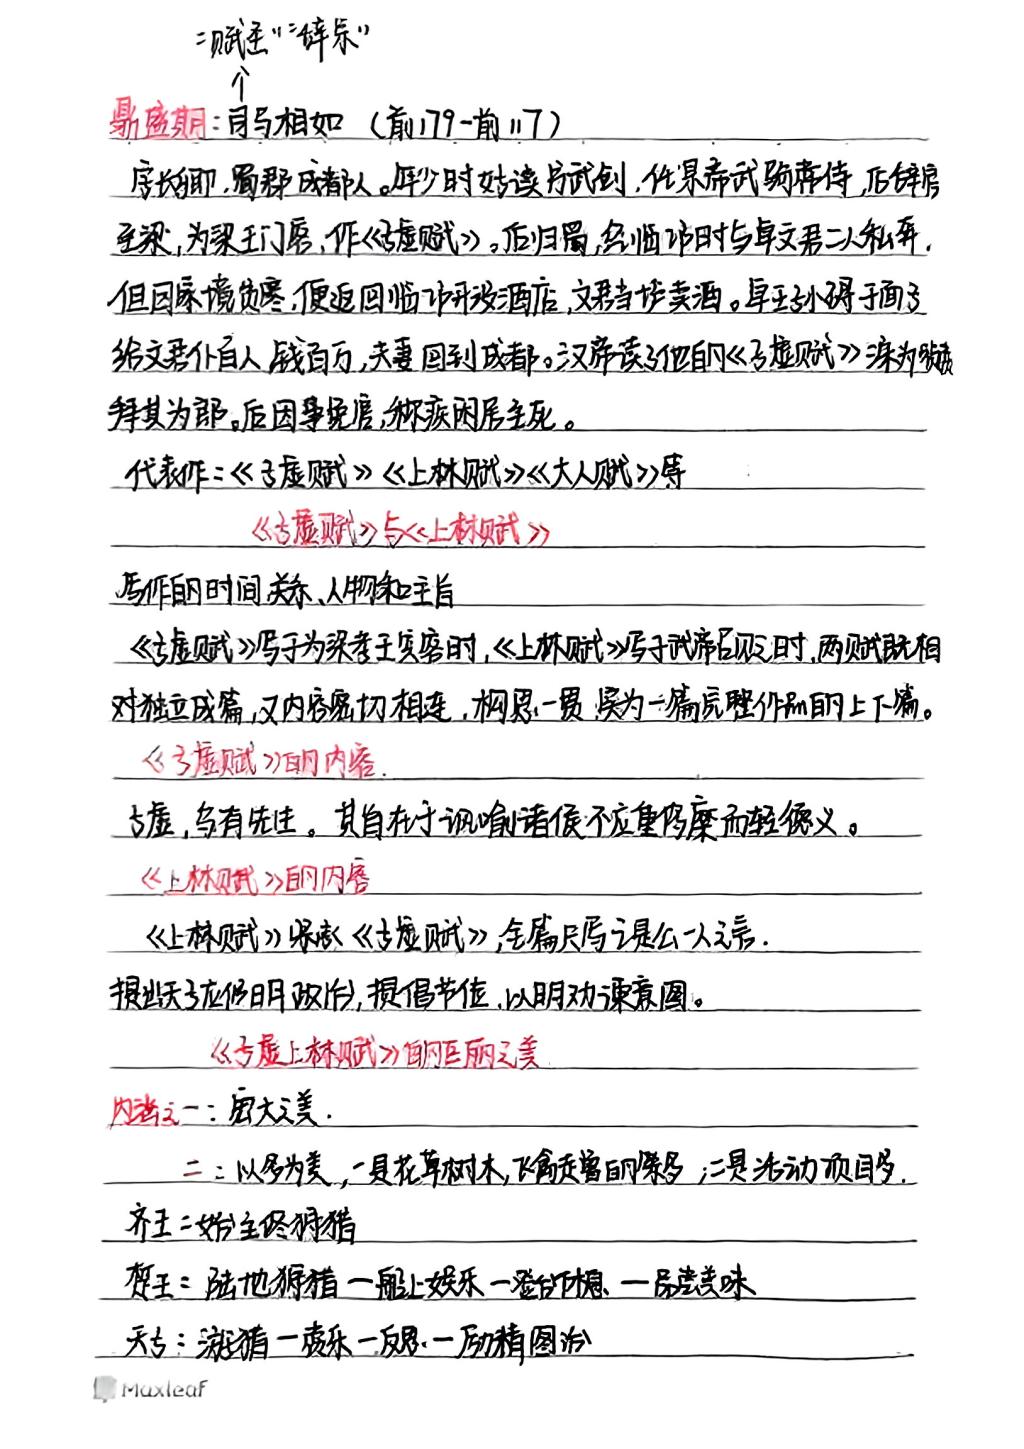 "赋圣" "辞宗"
↑
鼎盛期:司马相如 (前179-前117)
字长卿,蜀郡成都人。年少时好读书武剑,任景帝武骑常侍,后辞官
至梁,为梁王门客,作《子虚赋》。后归蜀,经临邛时与卓文君二人私奔.
但因家境贫寒,便返回临邛开设酒店,文君当垆卖酒。卓王孙碍于面子
给文君仆百人,钱百万,夫妻回到成都。汉帝读了他的《子虚赋》深为
拜其为郎。后因事免官,称疾闲居至死。
代表作:《子虚赋》《上林赋》《大人赋》等
《子虚赋》与《上林赋》
写作的时间关系、人物和主旨
《子虚赋》写于为梁孝王宾客时,《上林赋》写于武帝召见之时,两赋既相
对独立成篇,又内容密切相连,构思一贯,实为一篇完整作品的上下篇。
《子虚赋》的内容.
子虚,乌有先生。其旨在于讽喻诸侯不应重奢靡而轻德义。
《上林赋》的内容
《上林赋》紧承《子虚赋》,全篇只写亡是公一人之言.
提出天子应修明政治,提倡节俭,以明劝谏意图。
《子虚上林赋》的巨丽之美
内涵之一:宏大之美.
二:以多为美,一是花草树木,飞禽走兽的繁多;二是活动项目多.
齐王:始终狩猎
楚王:陆地狩猎-船上娱乐-登台休息-品尝美味
天子:游猎-奏乐-反思-励精图治
Maxleaf